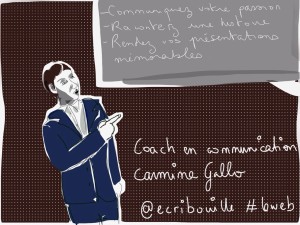 -Communiquez votre passion
-Racontez une histoire
-Rendez vos présentations
mémorables
Coach en communication
Carmine Gallo
@ecribouille #6web